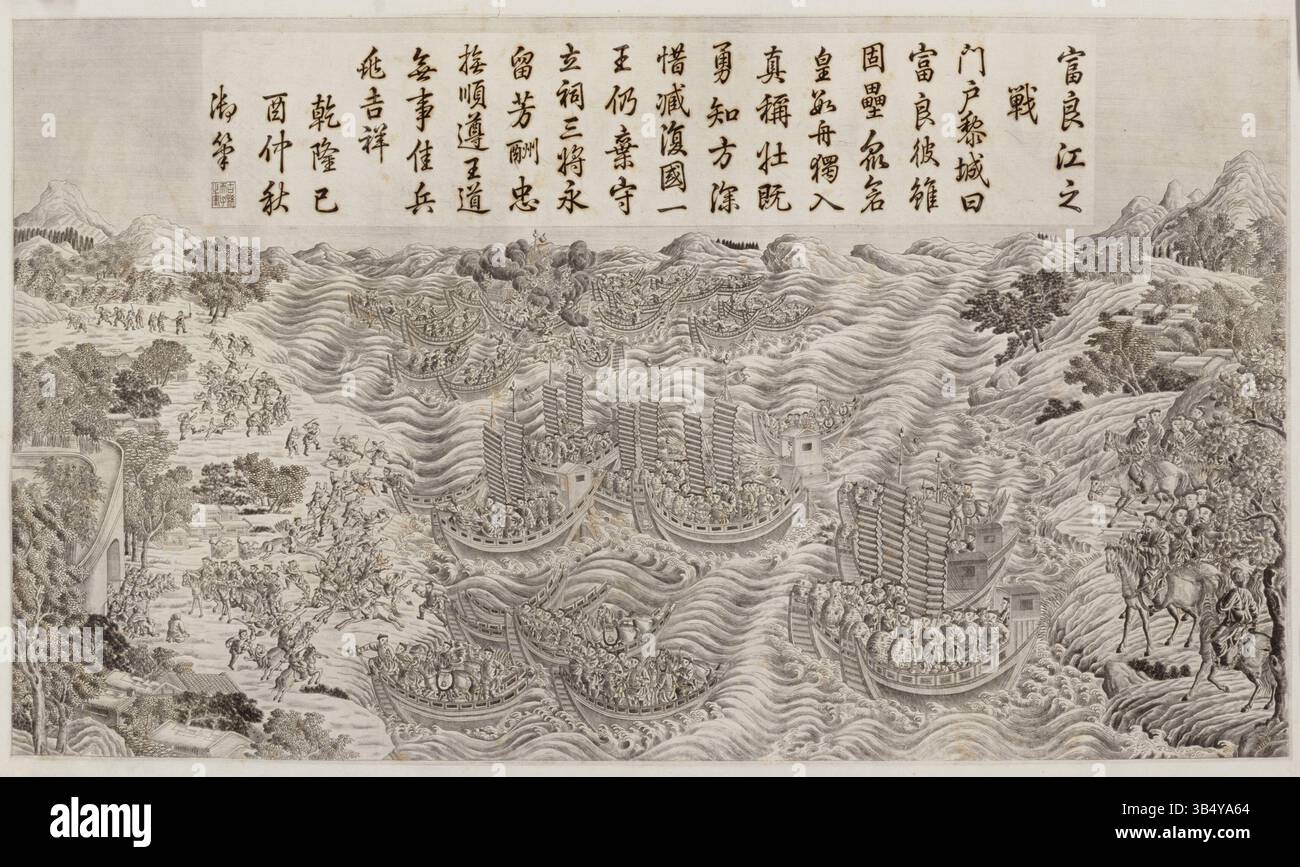 富良江之
戰
門戶黎城曰
富良彼雖
固壘
皇數舟獨入
真稱壯既
勇知方深
惜臧復國一
王仍棄守
立祠三將永
留芳酬忠
撫順遵王道
無事佳兵
兆吉祥
乾隆己
酉仲秋
御筆
alamy
a
a
a
a
alamy
Image ID: 3B4YA64
www.alamy.com